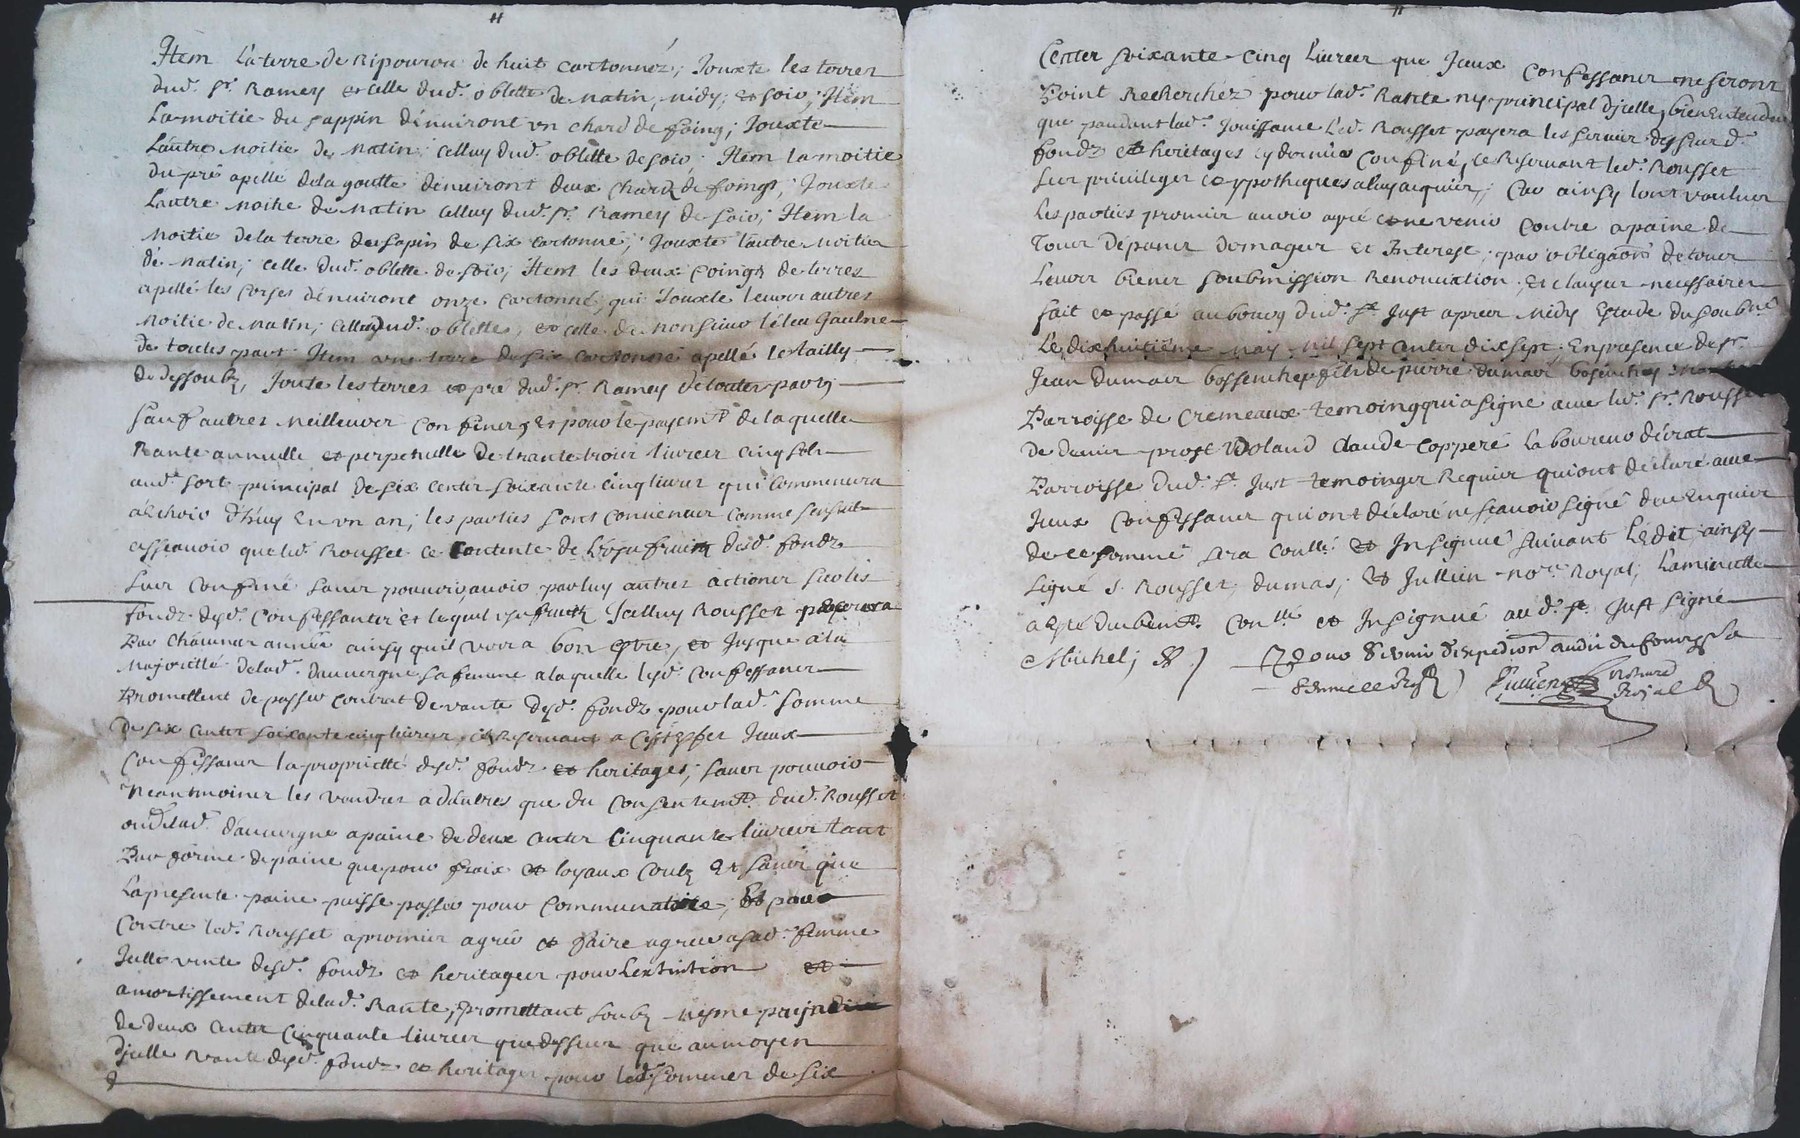 Item La terre de Ripourou de huit cartonnéz; Jouxte les terres
dud. sr. Ramey et celle dud. oblette de matin, midy, et soir; Item
La moitié du sappin dénuiront un chard de foing; Jouxte
Lautre moitié de matin; celluy dud. oblette de soir; Item la moitié
du pré apellé de la goutte dénuiront deux chardz de foingt; Jouxte
Lautre moitie de matin celluy dud. sr. Ramey de soir; Item la
moitié de la terre de sapin de six cartonné; Jouxte lautre moitie
de matin; celle dud. oblette de soir; Item les deux coingz de terres
apellé les corses dénuiront onze cartonné, qui Jouxte leurs autres
moitie de matin; celluy dud. oblette, et celle de Monsieur
de toutes part Item une terre de six cartonné apellé le tailly
de dessoubz, Joute les terres et pré dud. sr. Ramey de toutes partz
sauf autres meilleures confines, Et pour le payemt. de laquelle
Rante annuelle et perpetuelle de trante trois livres cinq solz
aud. sort principal de six cents soixante cinq livres qui commencera
a Eschoir d'huy En un an; les parties sont convenues comme sensuit
assçavoir que led. Rousset ce contente de L'usufruitz desd. fondz
sus confiné sans pouvoir avoir par luy autres actions sur les
fondz desd. confessants et lequel usufruitz Jcelluy Rousset
Par chacunes année ainsy quil verra bon estre, et Jusque a la
Majorité de lad. dauvergne sa femme a laquelle lesd. confessans
Promettent de passer contrat de vante desd. fondz pour lad. somme
de six cents soixante cinq livres, ce Reservant a cest Effet Jceux
confessans la proprietté desd. fondz et heritages; sans pouvoir
Neantmoins les vandres a dautres que du consentemt. dud. Rousset
ou de lad. dauvergne a paine de deux cents cinquante livres tant
Par forme de paine que pour fraix et loyaux coutz Et sans que
La presente paine puisse passer pour communatoire; Et par
contre led. Rousset a promis agréé et faire agréer a sad. femme
Jcelle vente desd. fondz et heritages pour Lextintion et
amortissement de lad. Rante, promettant soubz mesme paine
de deux cents cinquante livres que dessus que au moyen
djcelle vante desd. fondz et heritages pour lad. sommes de six
Cents soixante-cinq livres que Jceux confessans ne seront
Point Recherchéz pour lad. Rante ny principal djcelle, bien Entendu
que pandant lad. Jouissance led. Rousset payera les servis des susd.
fondz et heritages cy dernier confiné, ce Reservant led. Rousset
ses privileges et ypothiques a luy acquis; Car ainsy l'ont voulues
Les parties promis avoir agréé et ne venir contre a paine de
Tous dépans domages et Interest; par obligaons de tous
Leurs biens soubmission Renontiation, Et clauses necessaires
fait et passé au bourg dud. St. Just apres midy Estude du soubné.
Le dixhuitième may mil sept cents dix sept; En presence de sr.
Jean dumas bossenchez fils de pierre dumas
Parroisse de Cremeaux temoing qui a signé avec led. sr. Rousset
De denier Claude Copperé Laboureur
Parroisse dud. St. Just temoinges Requis qui ont déclaré avec
Jceux confessans qui ont déclaré ne sçavoir signé deue Enquis
de ce sommé sera coullé et Insignué suivant L'Edit ainsy
signé J. Rousset, dumas, et Jullien nore. Royal; La minutte
a esté duhemt. conllé et Insignué aud. St. Just signé
Michel; &. / Pour
Jullien notaire
Royal